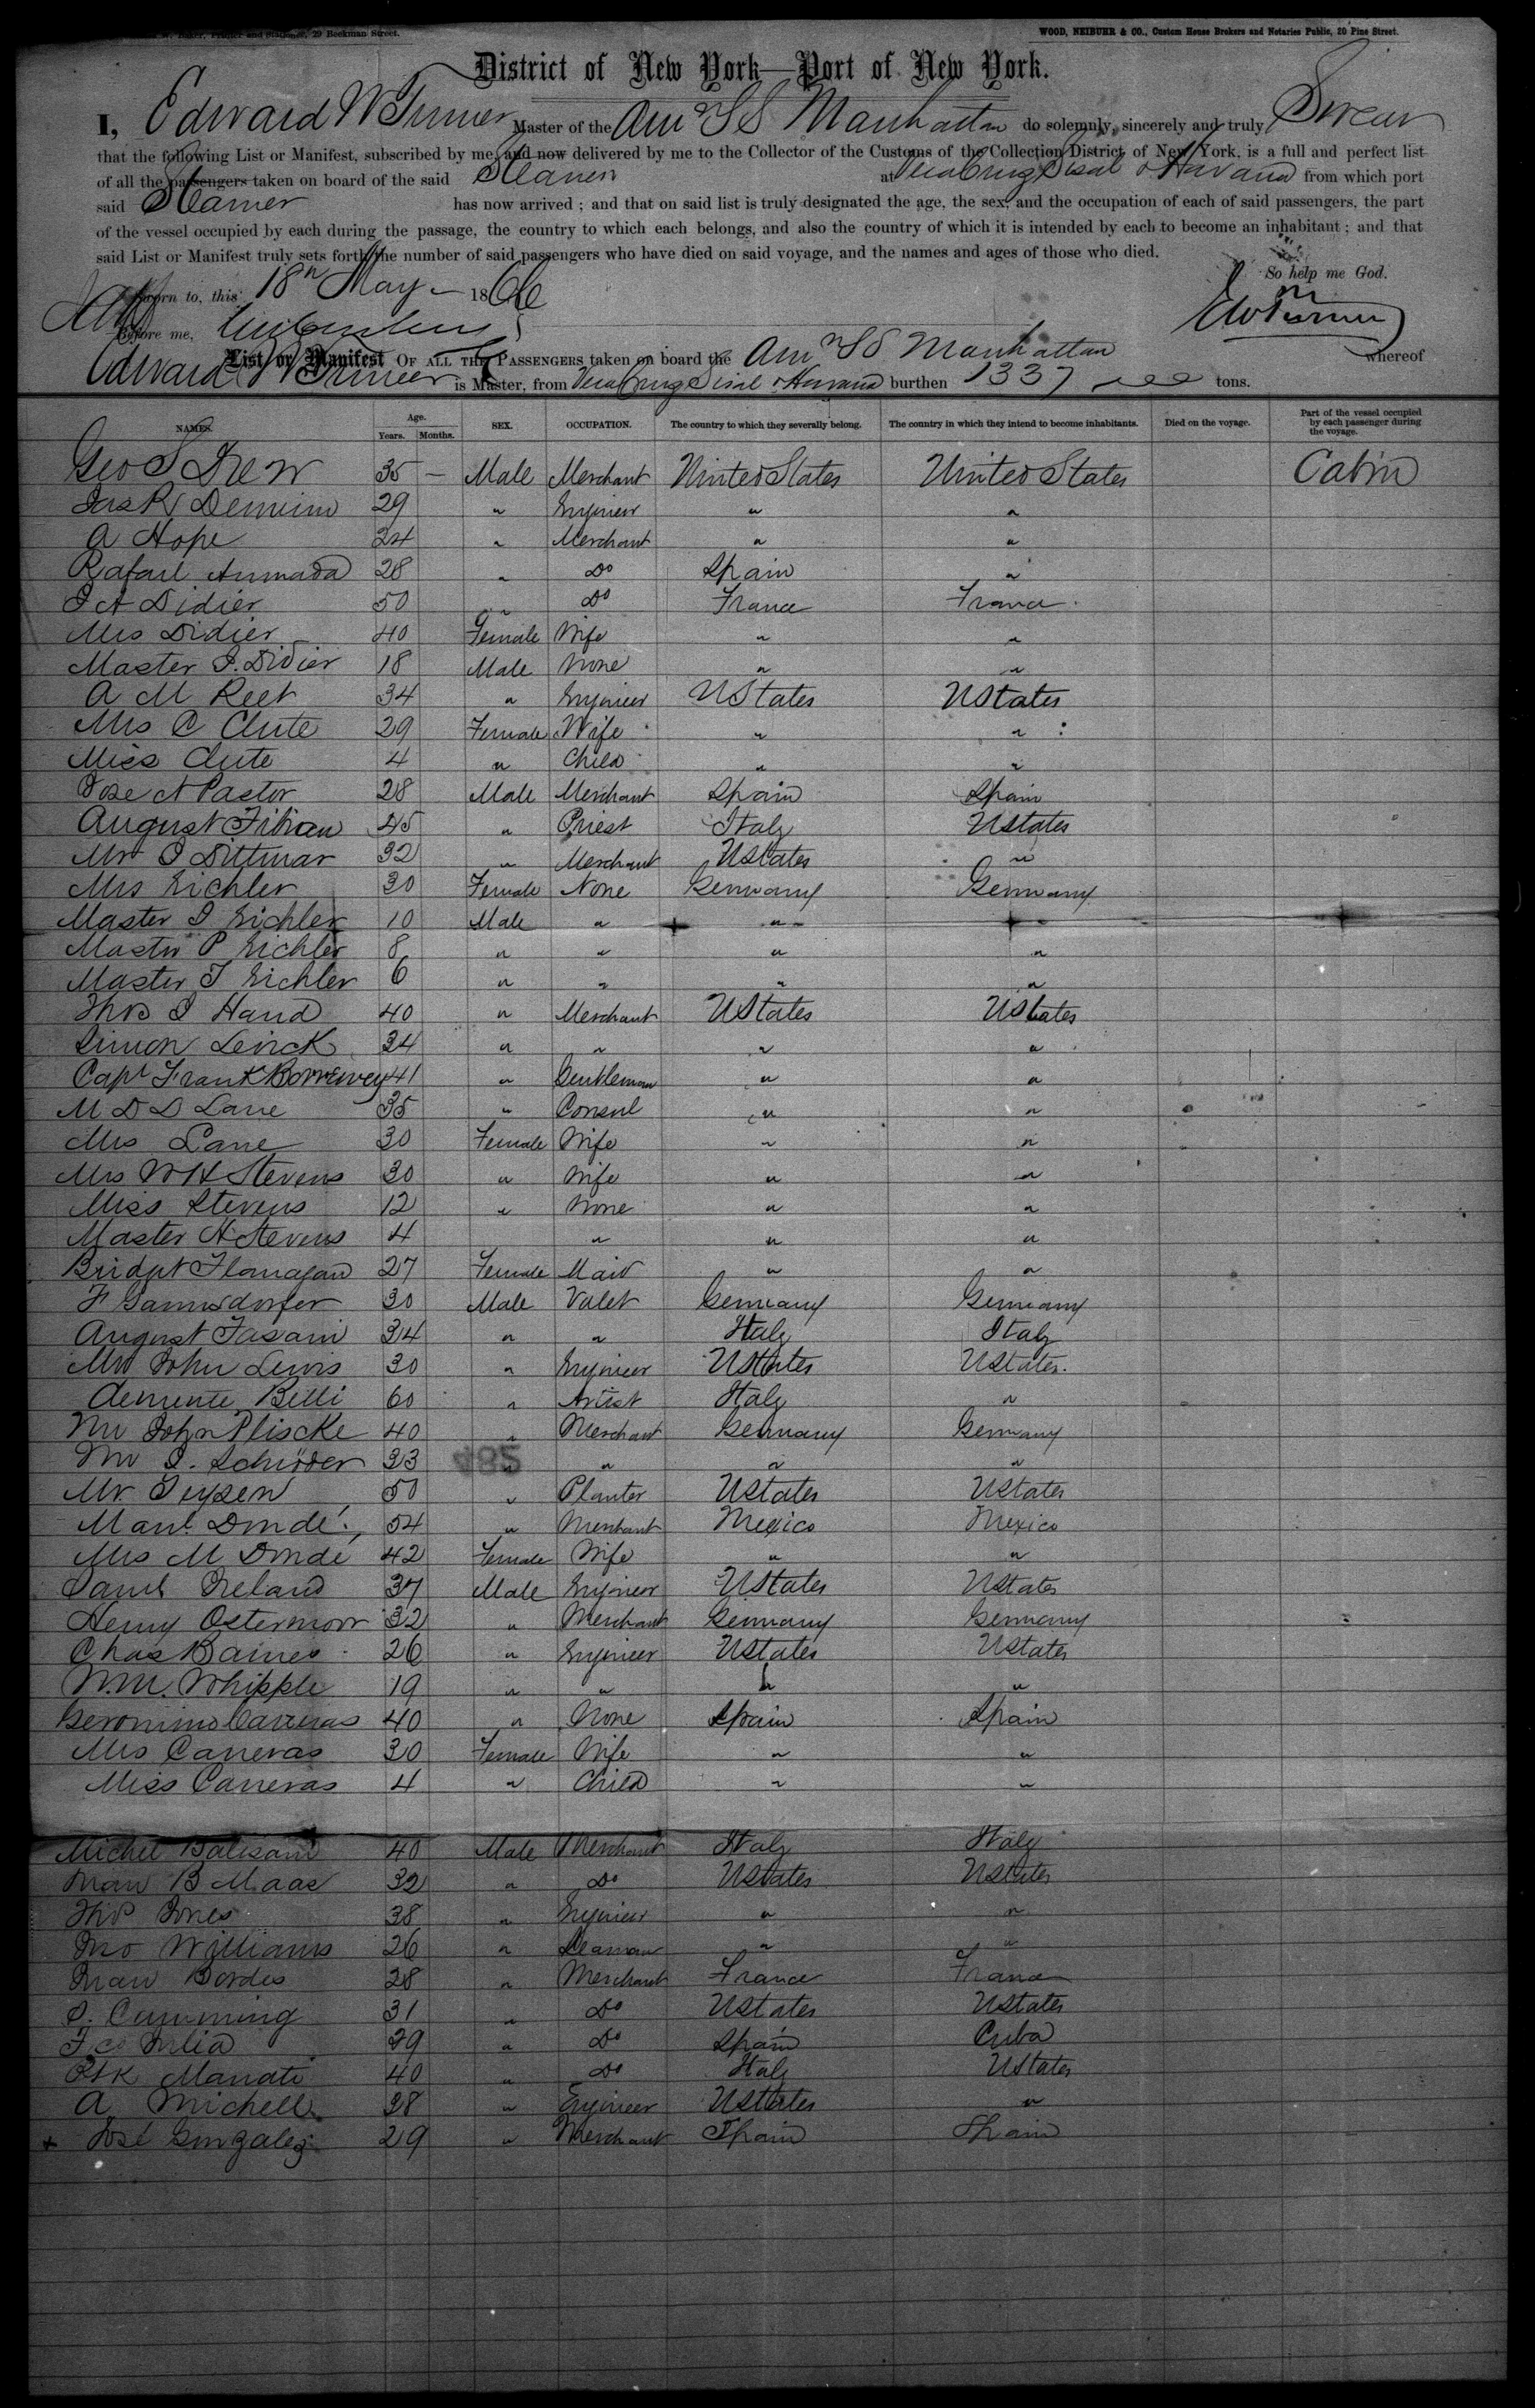 W. Baker, Printer and Stationer, 29 Beekman Street.
WOOD, NEIBUHR & CO., Custom House Brokers and Notaries Public, 20 Pine Street.
District of New York—Port of New York.
I, Edward W Turner Master of the Amn SS Manhattan do solemnly, sincerely and truly Swear
that the following List or Manifest, subscribed by me, and now delivered by me to the Collector of the Customs of the Collection District of New York, is a full and perfect list
of all the passengers taken on board of the said Steamer at Vera Cruz Sisal & Havana from which port
said Steamer has now arrived; and that on said list is truly designated the age, the sex, and the occupation of each of said passengers, the part
of the vessel occupied by each during the passage, the country to which each belongs, and also the country of which it is intended by each to become an inhabitant; and that
said List or Manifest truly sets forth the number of said passengers who have died on said voyage, and the names and ages of those who died.
So help me God.
Sworn to, this 18th May 1866
Before me,
EW Turner
List or Manifest OF ALL THE PASSENGERS taken on board the Amn SS Manhattan whereof
Edward W Turner is Master, from Vera Cruz Sisal & Havana burthen 1337 tons.
NAMES. Age. Years. Months. SEX. OCCUPATION. The country to which they severally belong. The country in which they intend to become inhabitants. Died on the voyage. Part of the vessel occupied by each passenger during the voyage.
Geo S Drew 35 — Male Merchant United States United States Cabin
Jas R 29 " Engineer " "
A Hope 34 " Merchant " "
Rafael Armada 28 " Do Spain "
J A Didier 50 " Do France France
Mrs Didier 40 Female Wife " "
Master J. Didier 18 Male None " "
A M Reet 34 " Engineer UStates UStates
Mrs C Clute 29 Female Wife " "
Miss Clute 4 " Child " "
Jose A Pastor 28 Male Merchant Spain Spain
August 45 " Priest Italy UStates
Mr J Dittmar 32 " Merchant UStates "
Mrs Eichler 30 Female None Germany Germany
Master J Eichler 10 Male " " "
Master P Eichler 8 " " " "
Master T Eichler 6 " " " "
Thos J Hand 40 " Merchant UStates UStates
Simon Levick 34 " " " "
Capt Frank 41 " Gentleman " "
M D D Lane 35 " Consul " "
Mrs Lane 30 Female Wife " "
Mrs W H Stevens 30 " Wife " "
Miss Stevens 12 " None " "
Master H Stevens 4 " " "
Bridget Flanagan 27 Female Maid " "
F 30 Male Valet Germany Germany
August Fasani 34 " " Italy Italy
Mr John Lewis 30 " Engineer UStates UStates
Clemente Belli 60 " Artist Italy "
Mr John Pliscke 40 " Merchant Germany Germany
Mr J. Schröder 33 " " " "
482
Mr Teysen 50 " Planter UStates UStates
Manl. Dondé 54 " Merchant Mexico Mexico
Mrs M Dondé 42 Female Wife " "
Saml Ireland 37 Male Engineer UStates UStates
Henry Ostermoor 32 " Merchant Germany Germany
Chas Baines 26 " Engineer UStates UStates
W.M. Whipple 19 " " " "
Geronimo Carreras 40 " None Spain Spain
Mrs Carreras 30 Female Wife " "
Miss Carreras 4 " Child " "
Michel 40 Male Merchant Italy Italy
Man B Maas 32 " Do UStates UStates
Thos Jones 38 " Engineer " "
Jno Williams 26 " Seaman " "
Bordes 28 " Merchant France France
J. Cumming 31 " Do UStates UStates
Fco Julia 29 " Do Spain Cuba
Manati 40 " Do Italy UStates
A Michell 38 " Engineer UStates "
+ José Gonzalez 29 " Merchant Spain Spain